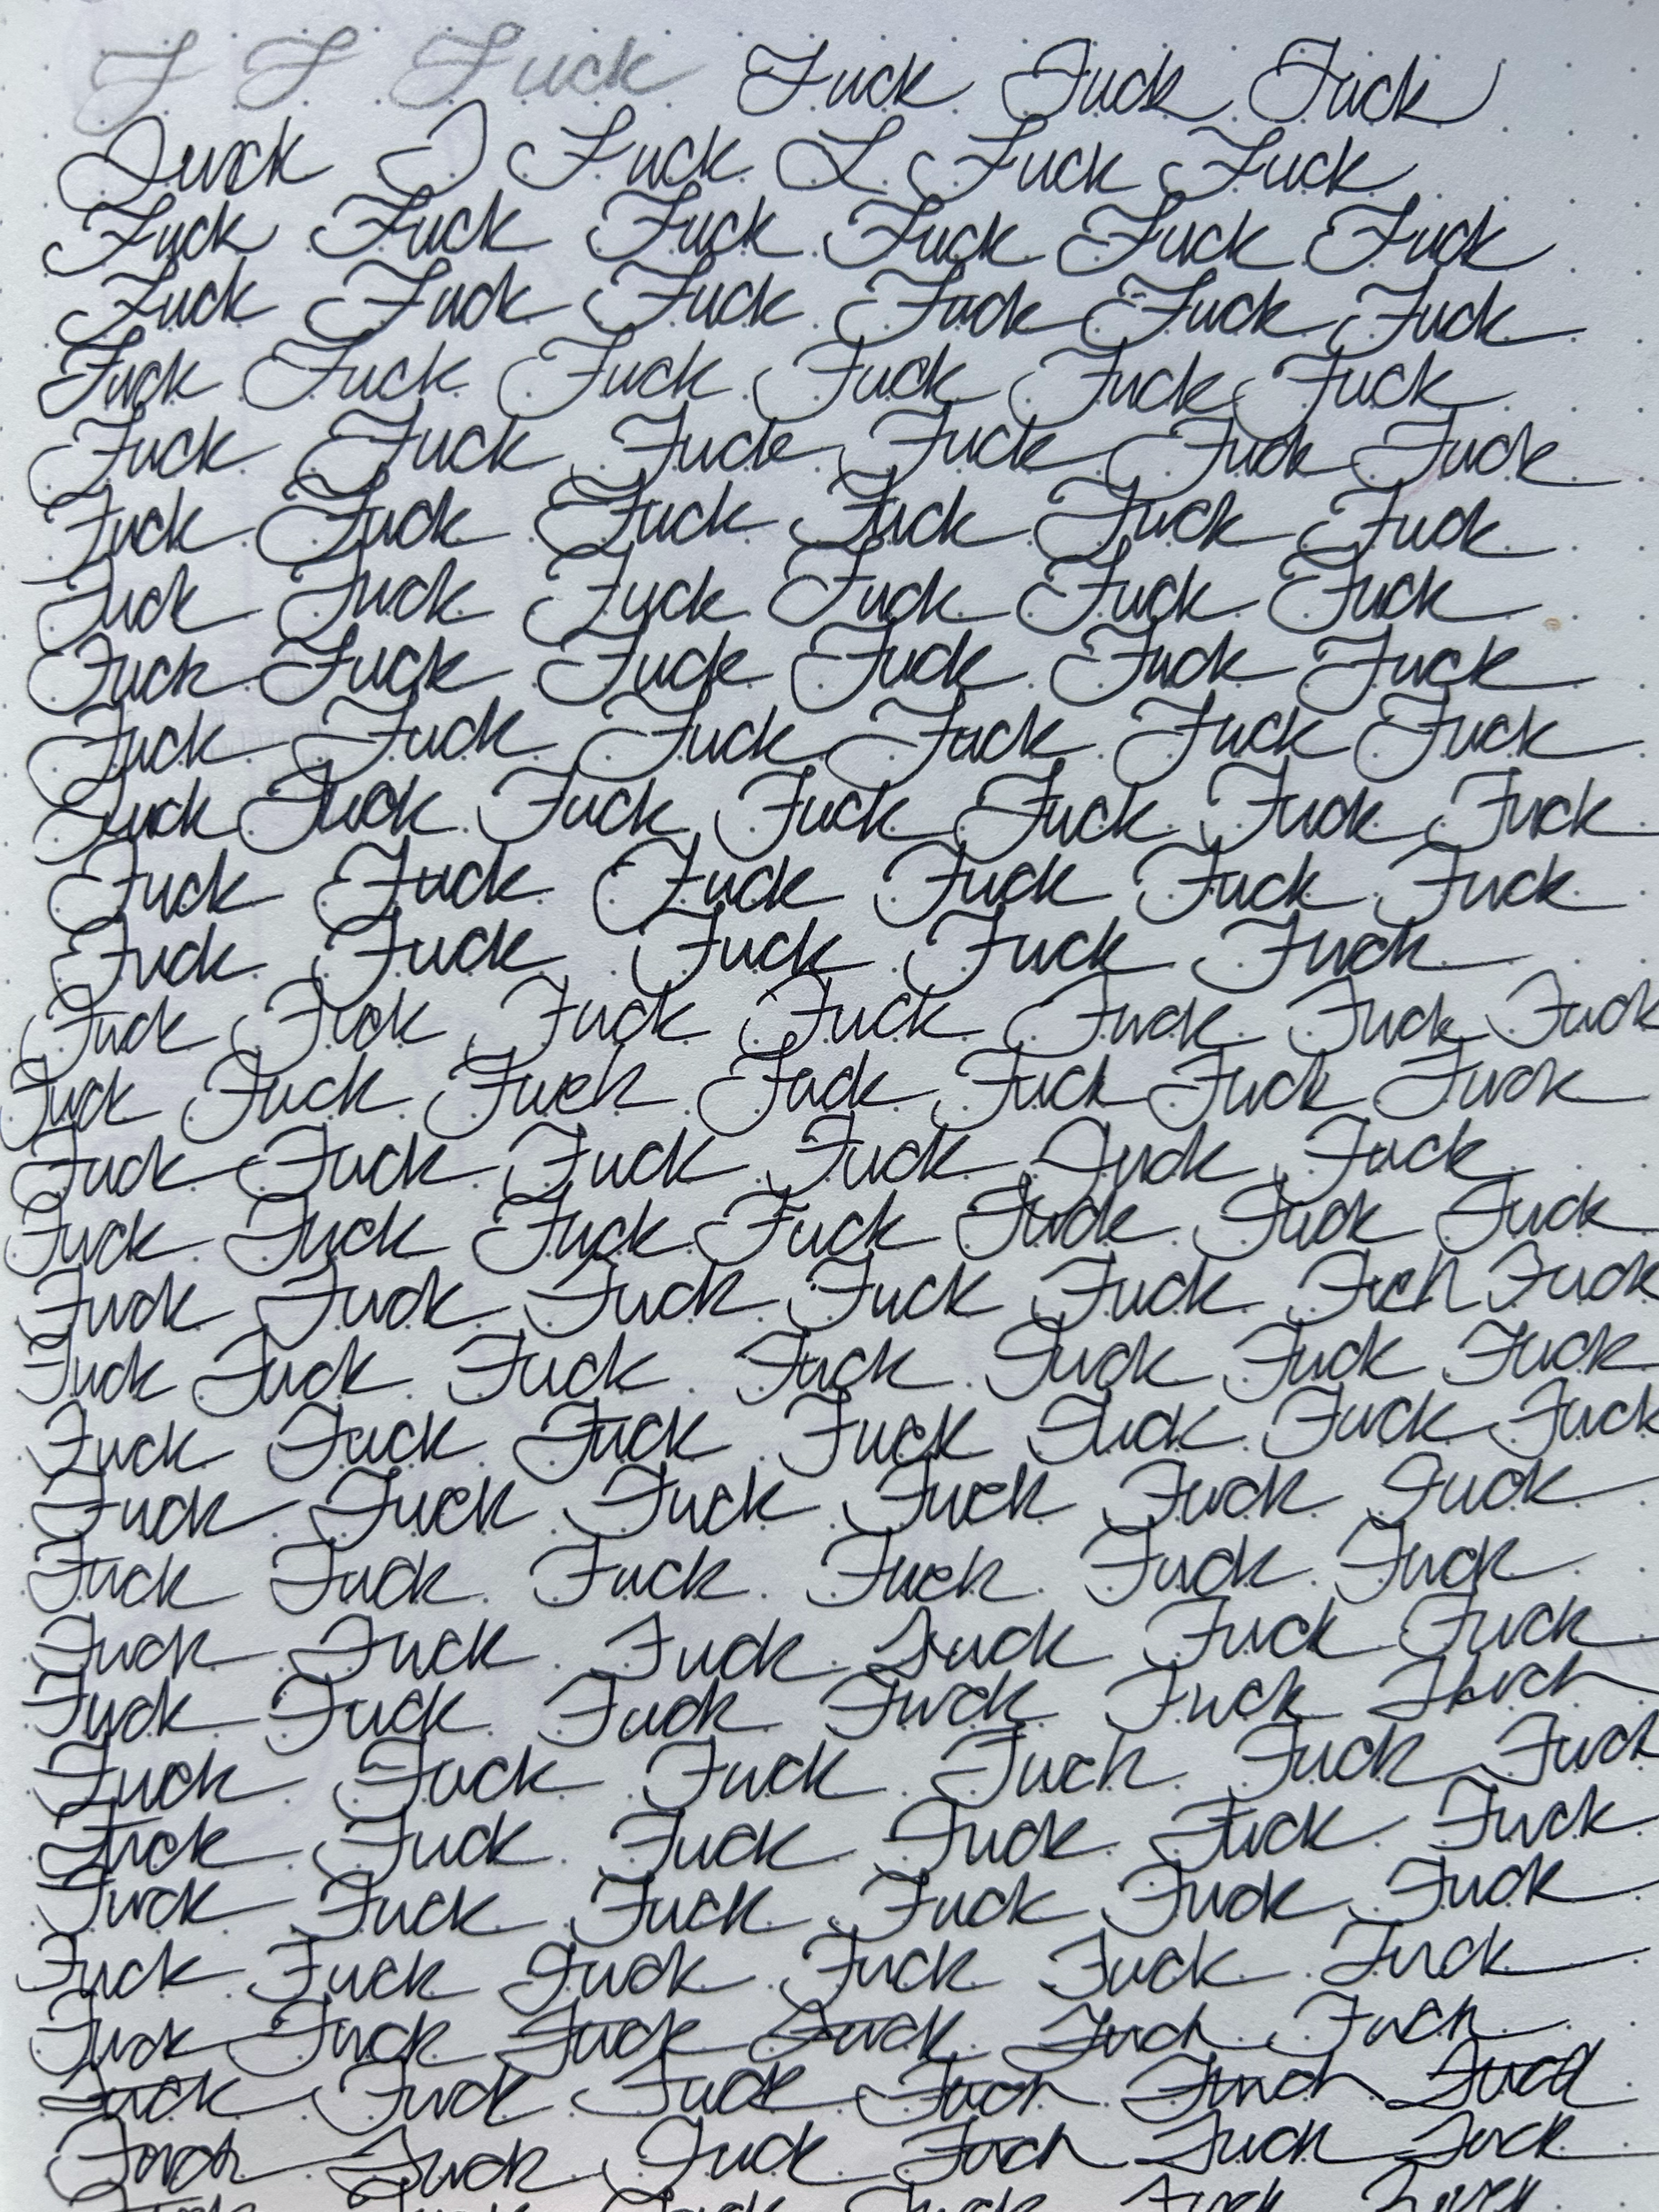 F F Fuck Fuck Fuck Fuck
Fuck Fuck Fuck Fuck
Fuck Fuck Fuck Fuck Fuck Fuck
Fuck Fuck Fuck Fuck Fuck Fuck
Fuck Fuck Fuck Fuck Fuck Fuck
Fuck Fuck Fuck Fuck Fuck Fuck
Fuck Fuck Fuck Fuck Fuck Fuck
Fuck Fuck Fuck Fuck Fuck Fuck
Fuck Fuck Fuck Fuck Fuck Fuck
Fuck Fuck Fuck Fuck Fuck Fuck
Fuck Fuck Fuck Fuck Fuck Fuck Fuck
Fuck Fuck Fuck Fuck Fuck Fuck
Fuck Fuck Fuck Fuck Fuck
Fuck Fuck Fuck Fuck Fuck Fuck Fuck
Fuck Fuck Fuck Fuck Fuck Fuck Fuck
Fuck Fuck Fuck Fuck Fuck Fuck
Fuck Fuck Fuck Fuck Fuck Fuck Fuck
Fuck Fuck Fuck Fuck Fuck Fuck Fuck
Fuck Fuck Fuck Fuck Fuck Fuck Fuck
Fuck Fuck Fuck Fuck Fuck Fuck Fuck
Fuck Fuck Fuck Fuck Fuck Fuck
Fuck Fuck Fuck Fuck Fuck Fuck
Fuck Fuck Fuck Fuck Fuck Fuck
Fuck Fuck Fuck Fuck Fuck
Fuck Fuck Fuck Fuck Fuck Fuck
Fuck Fuck Fuck Fuck Fuck Fuck
Fuck Fuck Fuck Fuck Fuck Fuck
Fuck Fuck Fuck Fuck Fuck Fuck
Fuck Fuck Fuck Fuck Fuck Fuck
Fuck Fuck Fuck Fuck Fuck Fuck
Fuck Fuck Fuck Fuck Fuck Fuck